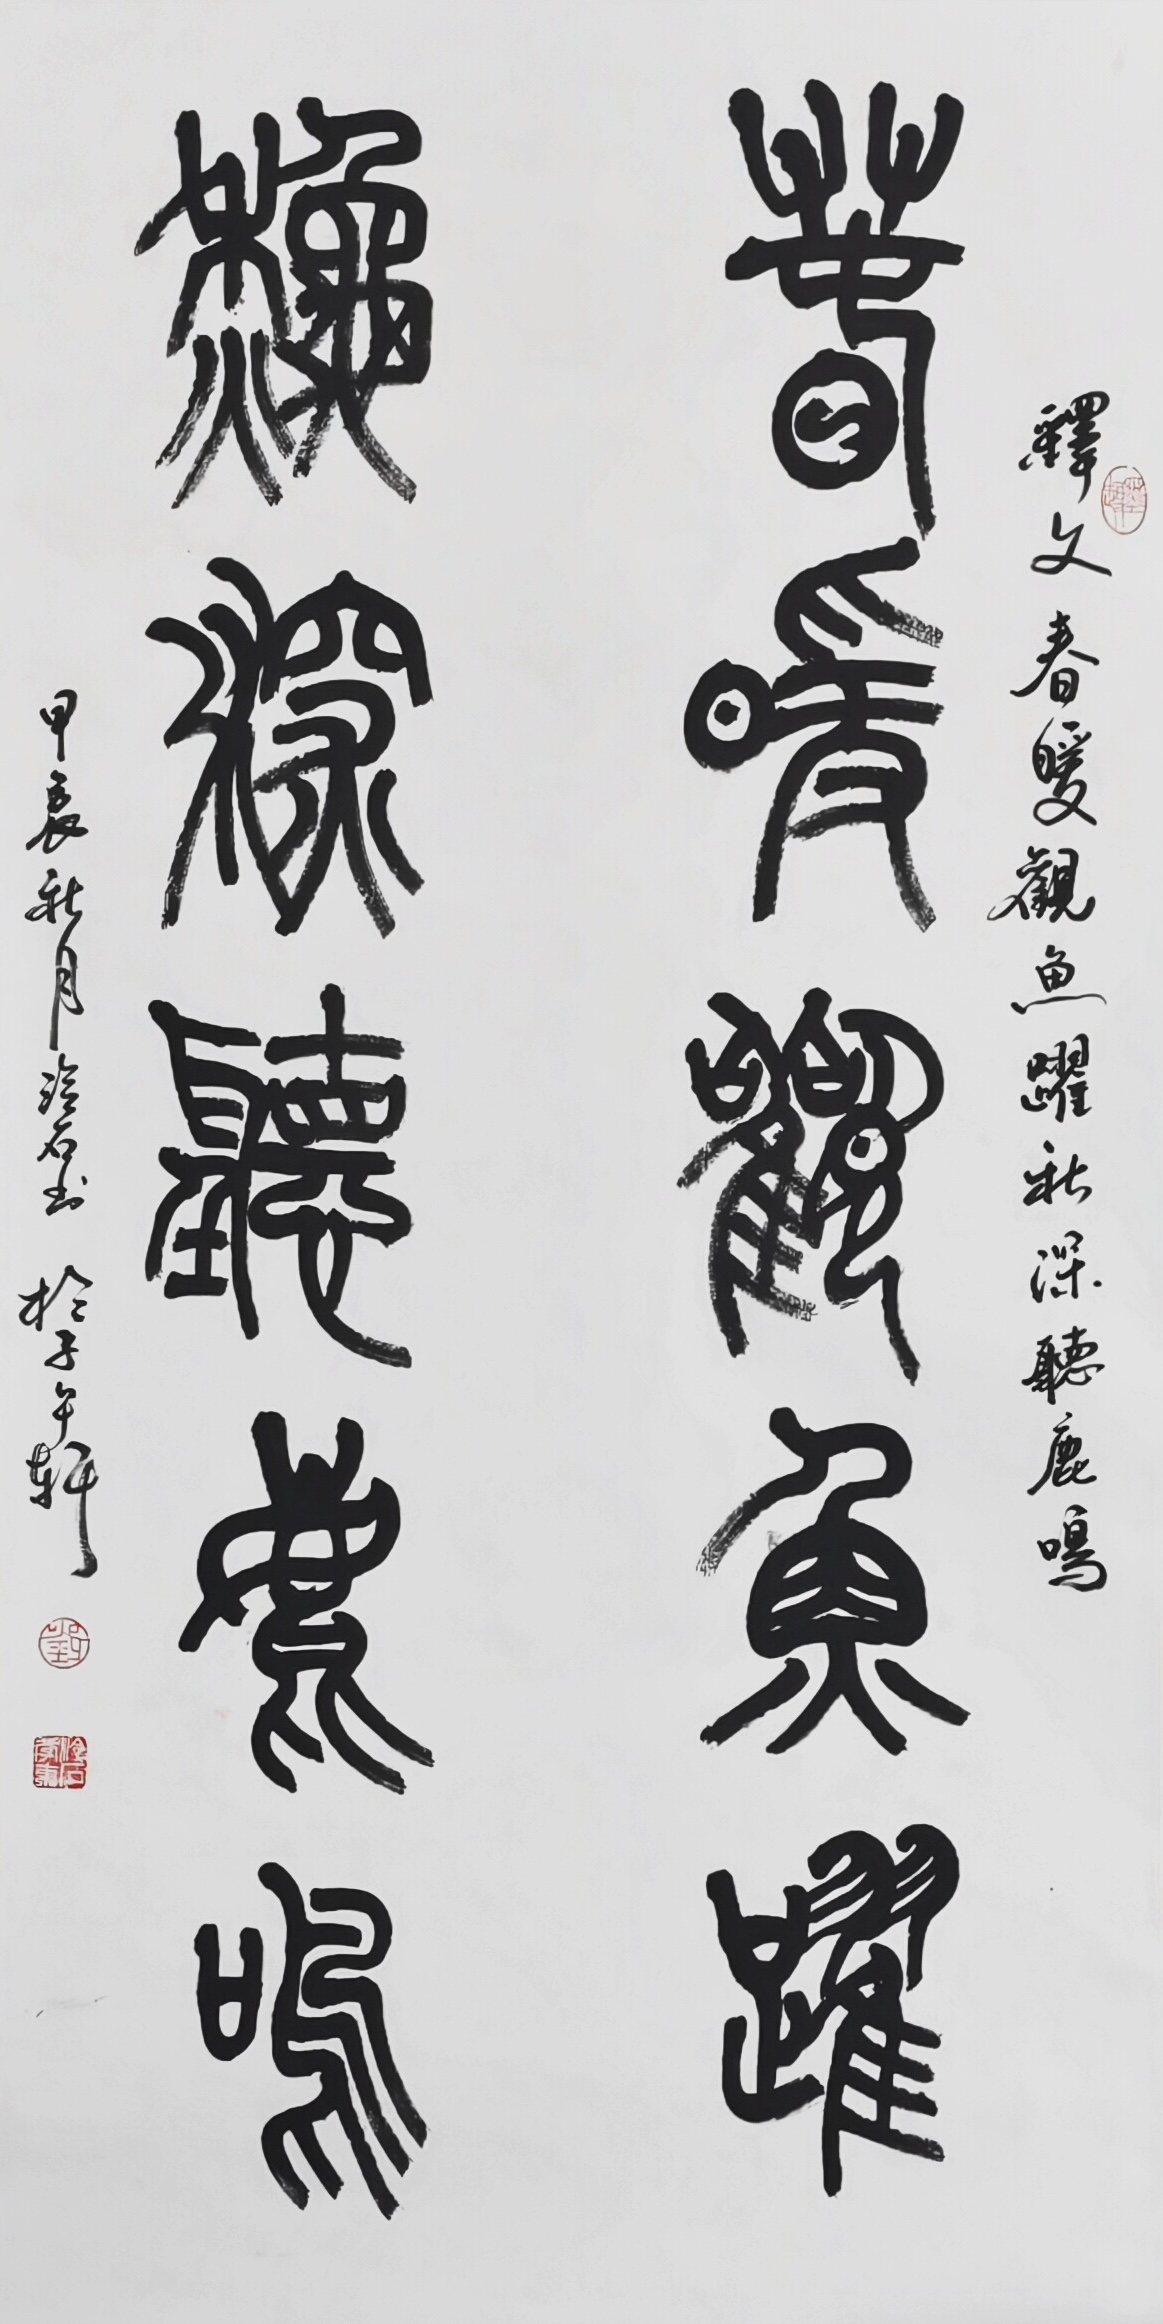 釋文春暖觀魚躍秋深聽鹿鳴
春暖觀魚躍
秋深聽鹿鳴
甲辰秋月冷石书於子午軒